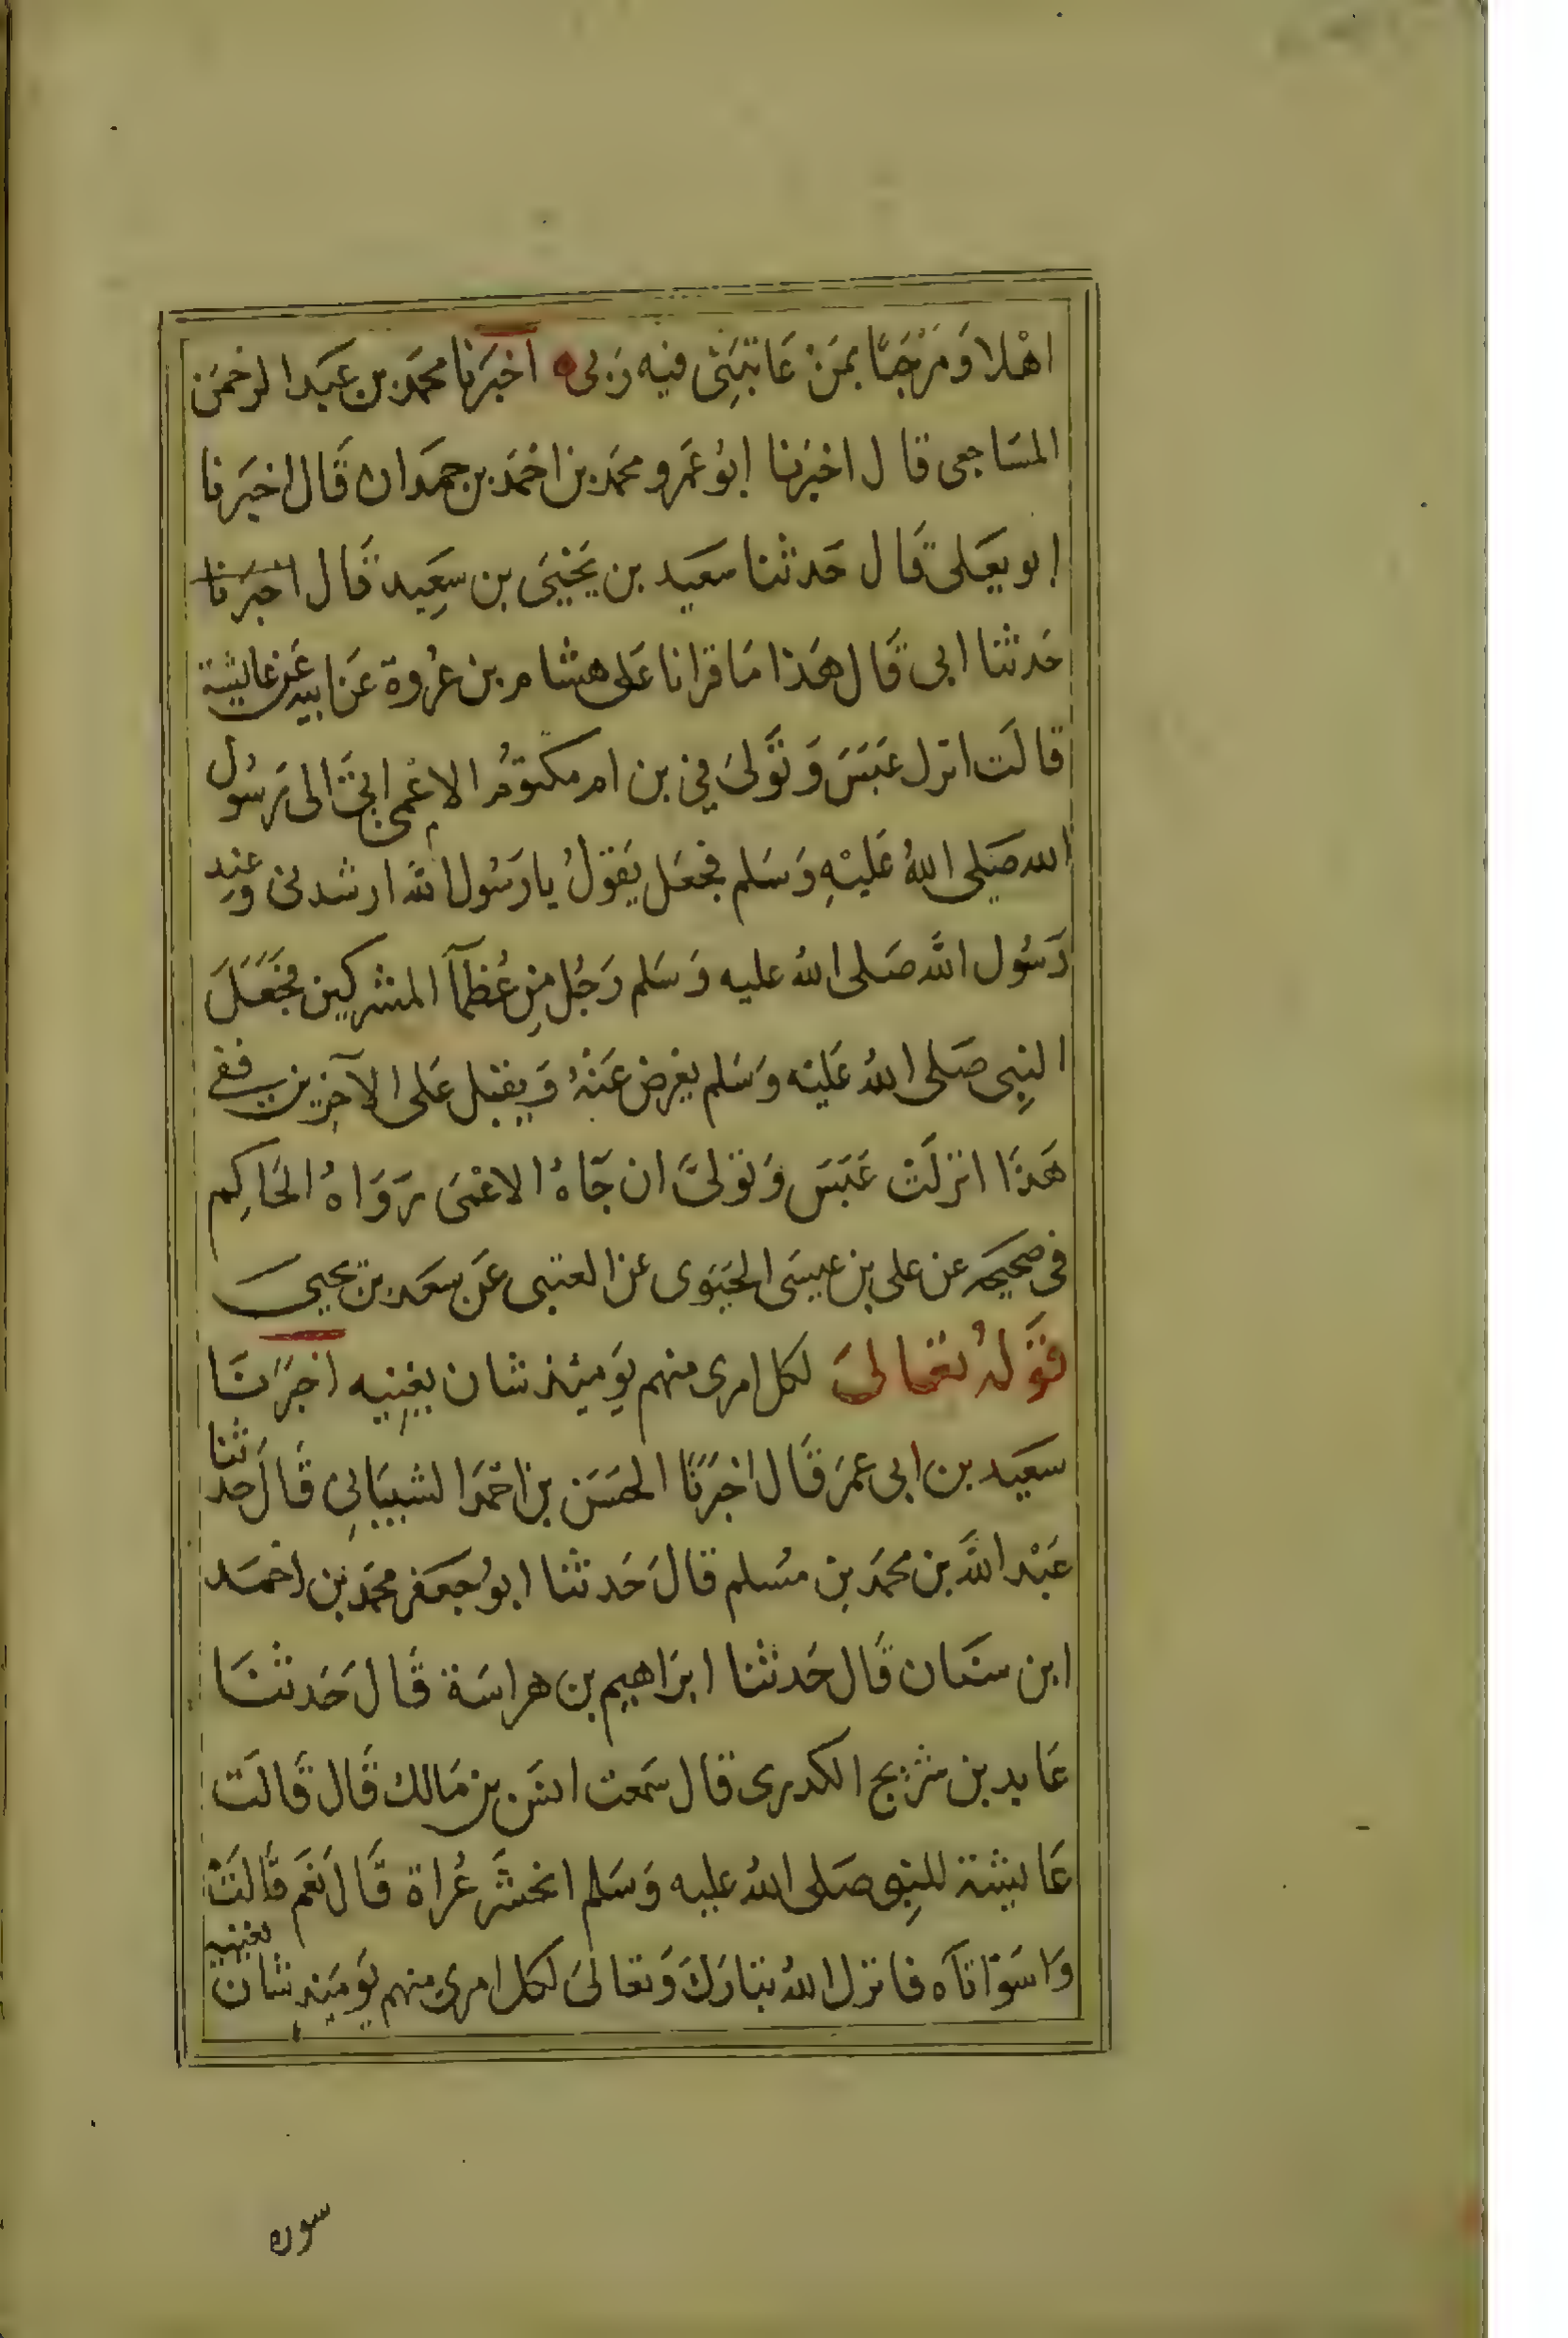 اهْلا وَمَرْحَبًا بمَنْ عَاتبَنِى فيه رَبى ه اخبَرنا محمَد بن عَبَد الرحمَن
المسَاجعى قال اخبَرنا ابُو عَمرو محمَد بن احْمَد بن حمدان قَال اخبَرنا
ابو يعَلى قَال حَدثنا سَعيد بن يَحْيىَ بن سعِيد قَال اخبرنا
حَدثنا ابى قَال هَذا مَا قرانا عَلى هشام بن عُروة عَن ابيه عَن عايشة
قالَت انزل عَبَسَ وَتَولىَ فى بن ام مكتوُم الاعْمى اتىَ الى رسُول
الله صَلى اللهُ عَليْهِ وَسَلم فجعَل يَقوُلُ يا رَسُول الله ارشدنى وعند
رَسُول الله صَلى اللهُ عليه وَسَلم رَجُل مِن عُظمآ المشركين فجَعَلَ
النبِى صَلى اللهُ عَليْه وَسَلم يعرض عَنْهُ وَيقبل عَلى الآخِرين ففى
هَذا انزلَتْ عَبَسَ وَتولىَّ ان جَآهُ الاعْمىَ رَوَاهُ الحَاكِم
فى صحيحه عن على بن عيسَى الحيَوى عن العتبى عَن سعَد بن يحيى
قوَلهُ تعَالىَ لكل امرى منهم يوَميئذ شان يغنِيه اخبَرَنا
سعَيد بن ابى عمرَ قَال اخبَرنَا الحسَن بن احمَد الشيبَانىِ قَالَ حدثنا
عَبْد الله بن محمَد بن مسُلم قالَ حَدثنا ابوُ جعَفر محمَد بن احمَد
ابن سنَان قَال حَدثنا ابرَاهيم بن هراسَة قَالَ حَدثنَا
عَايد بن شريح الكدرى قال سَمعت انسَ بن مَالك قَال قَالَت
عَايشة للنبِى صَلى اللهُ عليه وَسَلم انحشَر عُراة قَالَ نَعَم قَالَتْ
وَاسَوَاتآه فانزل اللهُ تبَارَكَ وَتعَالىَ لكل امرى منهم يوَميَذ شَان يغنيه
سوره